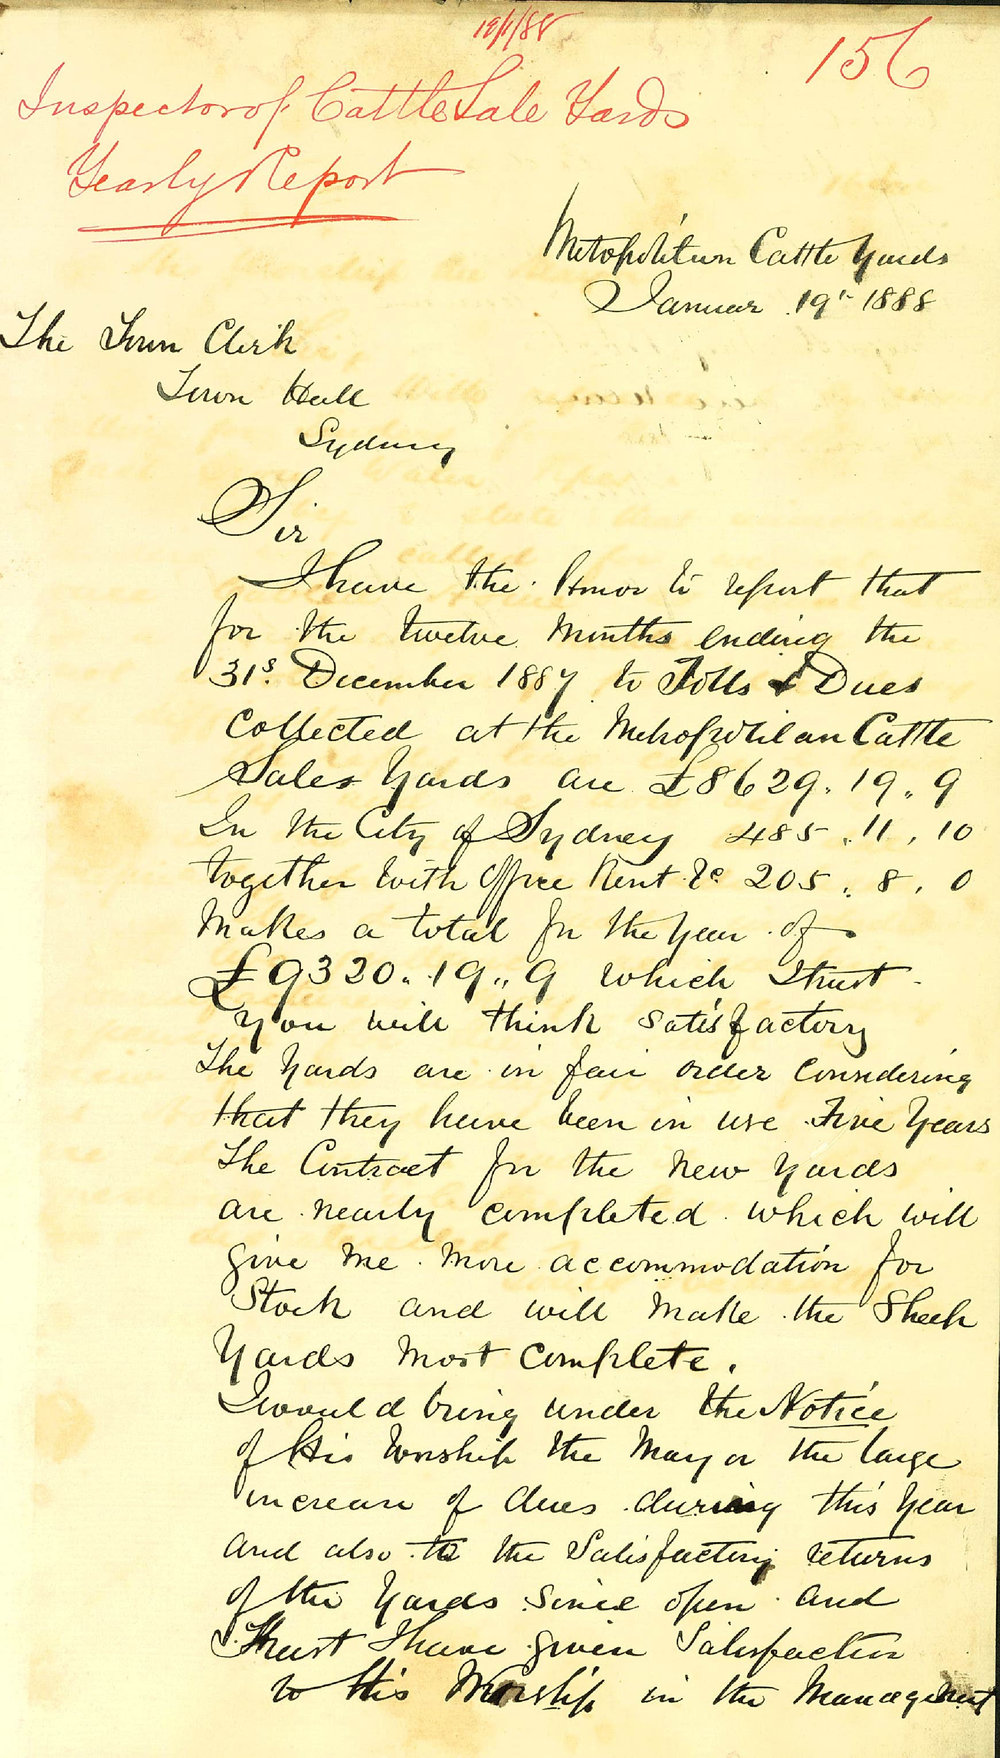 19/1/88
156
Inspector of Cattle Sale Yards
Yearly Report
Metopolitan Cattle Yards
Januar 19t 1888
The Town Clerk
Town Hall
Sydney
Sir
I have the Honor to report that
for the twelve Months ending the
31s. December 1887 to Tolls & Dues
Collected at the Metropolitan Cattle
Sales Yards are £8629. 19. 9
In the City of Sydney 485. 11. 10
together with Office Rent &c 205. 8. 0
Makes a total for the Year of
£9320. 19. 9 which I trust
you will think satisfactory
The Yards are in fair order Considering
that they have been in use Five Years
The Contract for the New Yards
are nearly completed which will
give me more accommodation for
Stock and will make the Sheep
Yards most complete.
I would bring under the Notice
of His Worship the Mayor the large
increase of dues during this Year
and also to the Satisfactory returns
of the Yards since open and
Trust I have given Satisfaction
to His Worship in the Management